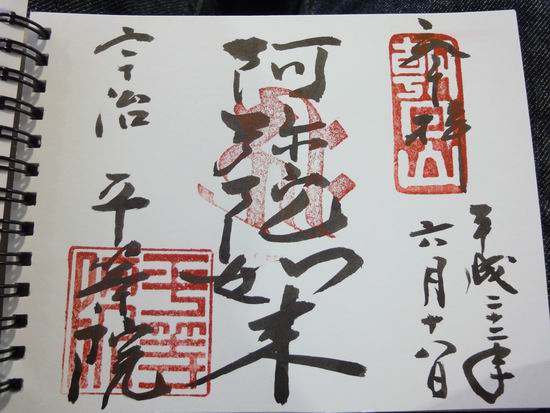 奉拝
朝日山
平成二十二年
六月十八日
阿弥陀如来
宇治 平等院
平等院印